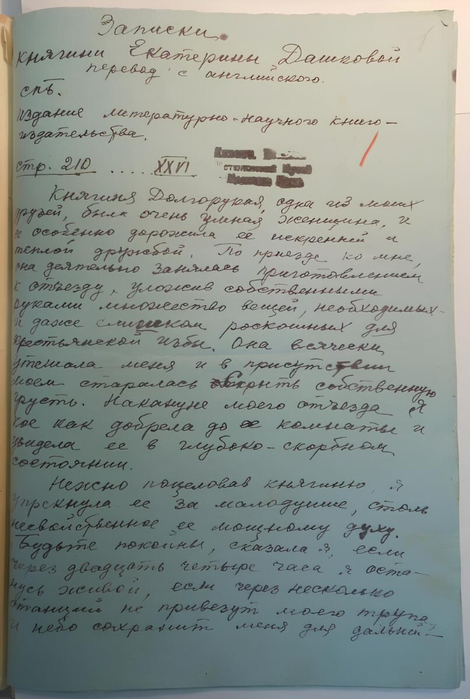 Записки
княгини Екатерины Дашковой
перевод с английского.
спб.
издание литературно-научного книго-
издательства.
стр. 210 ..... XXVI
Княгиня Долгорукая, одна из моих
друзей, была очень умная женщина, и
я особенно дорожила ее искренней и
теплой дружбой. По приезде ко мне,
она деятельно занялась приготовлением
к отъезду, уложив собственными
руками множество вещей, необходимых
и даже слишком роскошных для
крестьянской избы. Она всячески
утешала меня и в присутствии
моем старалась скрыть собственную
грусть. Накануне моего отъезда я
кое как добрела до ее комнаты и
увидела ее в глубоко-скорбном
состоянии.
Нежно поцеловав княгиню, я
упрекнула ее за малодушие, столь
несвойственное ее мощному духу.
Будьте покойны, сказала я, если
через двадцать четыре часа я оста-
нусь живой, если через несколько
станций не привезут моего трупа
и небо сохранит меня для дальней-